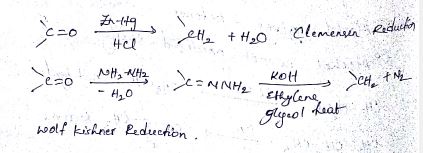 >C=O Zn-Hg / HCl → >CH₂ + H₂O Clemensen Reduction
>C=O NH₂-NH₂ / -H₂O → >C=NNH₂ KOH / Ethylene glycol heat → >CH₂ + N₂
wolf kishner Reduction.